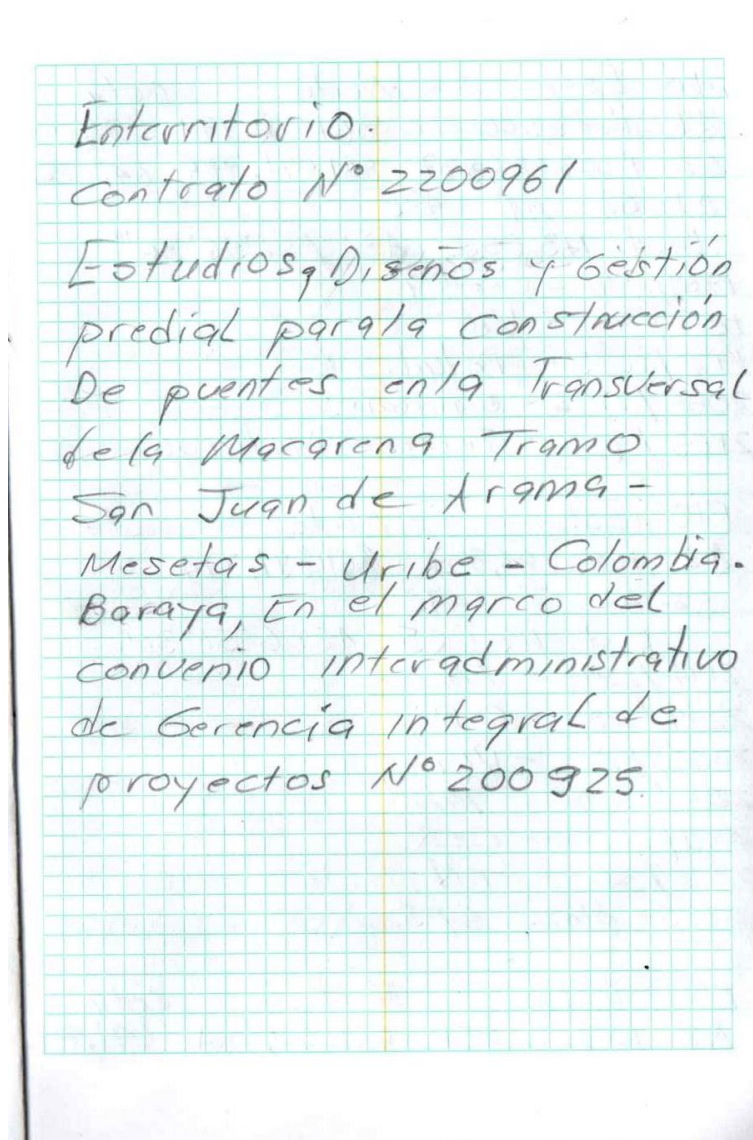 Enterritorio.
Contrato N° 2200961
Estudios, Diseños y Gestión
predial para la Construcción
De puentes en la Transversal
de la Macarena Tramo
San Juan de Arama -
Mesetas - Uribe - Colombia.
Baraya, En el marco del
convenio interadministrativo
de Gerencia integral de
proyectos N° 200925.